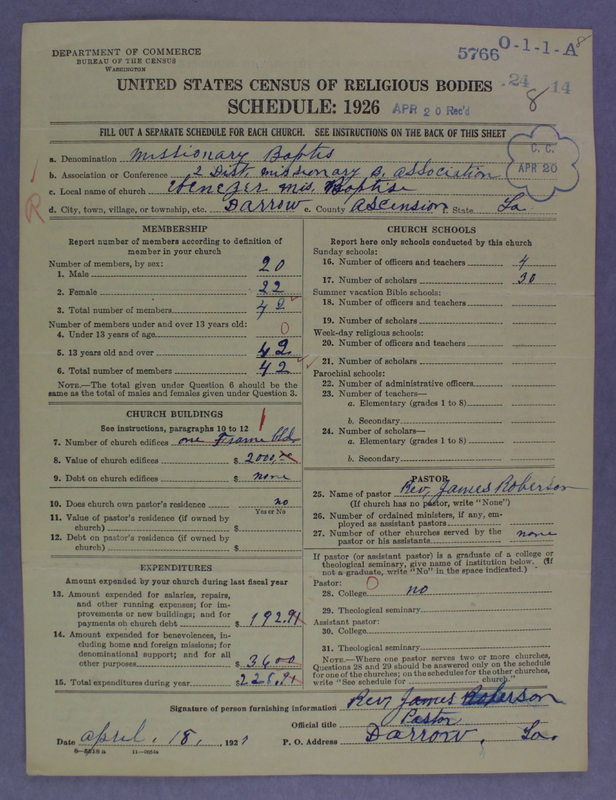 DEPARTMENT OF COMMERCE
BUREAU OF THE CENSUS
WASHINGTON
5766 O-1-1-A
8
UNITED STATES CENSUS OF RELIGIOUS BODIES
.24 8 14
SCHEDULE: 1926 APR 20 Rec'd
FILL OUT A SEPARATE SCHEDULE FOR EACH CHURCH. SEE INSTRUCTIONS ON THE BACK OF THIS SHEET
C. C.
APR 20
a. Denomination Missionary Baptis
b. Association or Conference 2 Dist. Missionary B. Association
c. Local name of church Ebenezer Mis. Baptise
R
d. City, town, village, or township, etc. Darrow e. County Ascension f. State La
MEMBERSHIP
Report number of members according to definition of
member in your church
Number of members, by sex:
1. Male 20
2. Female 22
3. Total number of members 42
Number of members under and over 13 years old:
4. Under 13 years of age 0
5. 13 years old and over 42
6. Total number of members 42
NOTE.—The total given under Question 6 should be the
same as the total of males and females given under Question 3.
CHURCH BUILDINGS
See instructions, paragraphs 10 to 12 1
7. Number of church edifices one Frame bldg
8. Value of church edifices $ 2000.00
9. Debt on church edifices $ none
10. Does church own pastor's residence no
Yes or No
11. Value of pastor's residence (if owned by
church) $
12. Debt on pastor's residence (if owned by
church) $
EXPENDITURES
Amount expended by your church during last fiscal year
13. Amount expended for salaries, repairs,
and other running expenses; for im-
provements or new buildings; and for
payments on church debt $ 192.91
14. Amount expended for benevolences, in-
cluding home and foreign missions; for
denominational support; and for all
other purposes $ 36 00
15. Total expenditures during year $ 228.91
CHURCH SCHOOLS
Report here only schools conducted by this church
Sunday schools:
16. Number of officers and teachers 4
17. Number of scholars 30
Summer vacation Bible schools:
18. Number of officers and teachers
19. Number of scholars
Week-day religious schools:
20. Number of officers and teachers
21. Number of scholars
Parochial schools:
22. Number of administrative officers
23. Number of teachers—
a. Elementary (grades 1 to 8)
b. Secondary
24. Number of scholars—
a. Elementary (grades 1 to 8)
b. Secondary
PASTOR
25. Name of pastor Rev, James Roberson
(If church has no pastor, write "None")
26. Number of ordained ministers, if any, em-
ployed as assistant pastors
27. Number of other churches served by the
pastor or his assistants none
If pastor (or assistant pastor) is a graduate of a college or
theological seminary, give name of institution below. (If
not a graduate, write "No" in the space indicated.)
Pastor: 0
28. College no
29. Theological seminary
Assistant pastor:
30. College
31. Theological seminary
NOTE.—Where one pastor serves two or more churches,
Questions 28 and 29 should be answered only on the schedule
for one of the churches; on the schedules for the other churches,
write "See schedule for church."
Signature of person furnishing information Rev, James Roberson
Official title Pastor
Date April, 18, 1927 P. O. Address Darrow, La.
8—5518 a